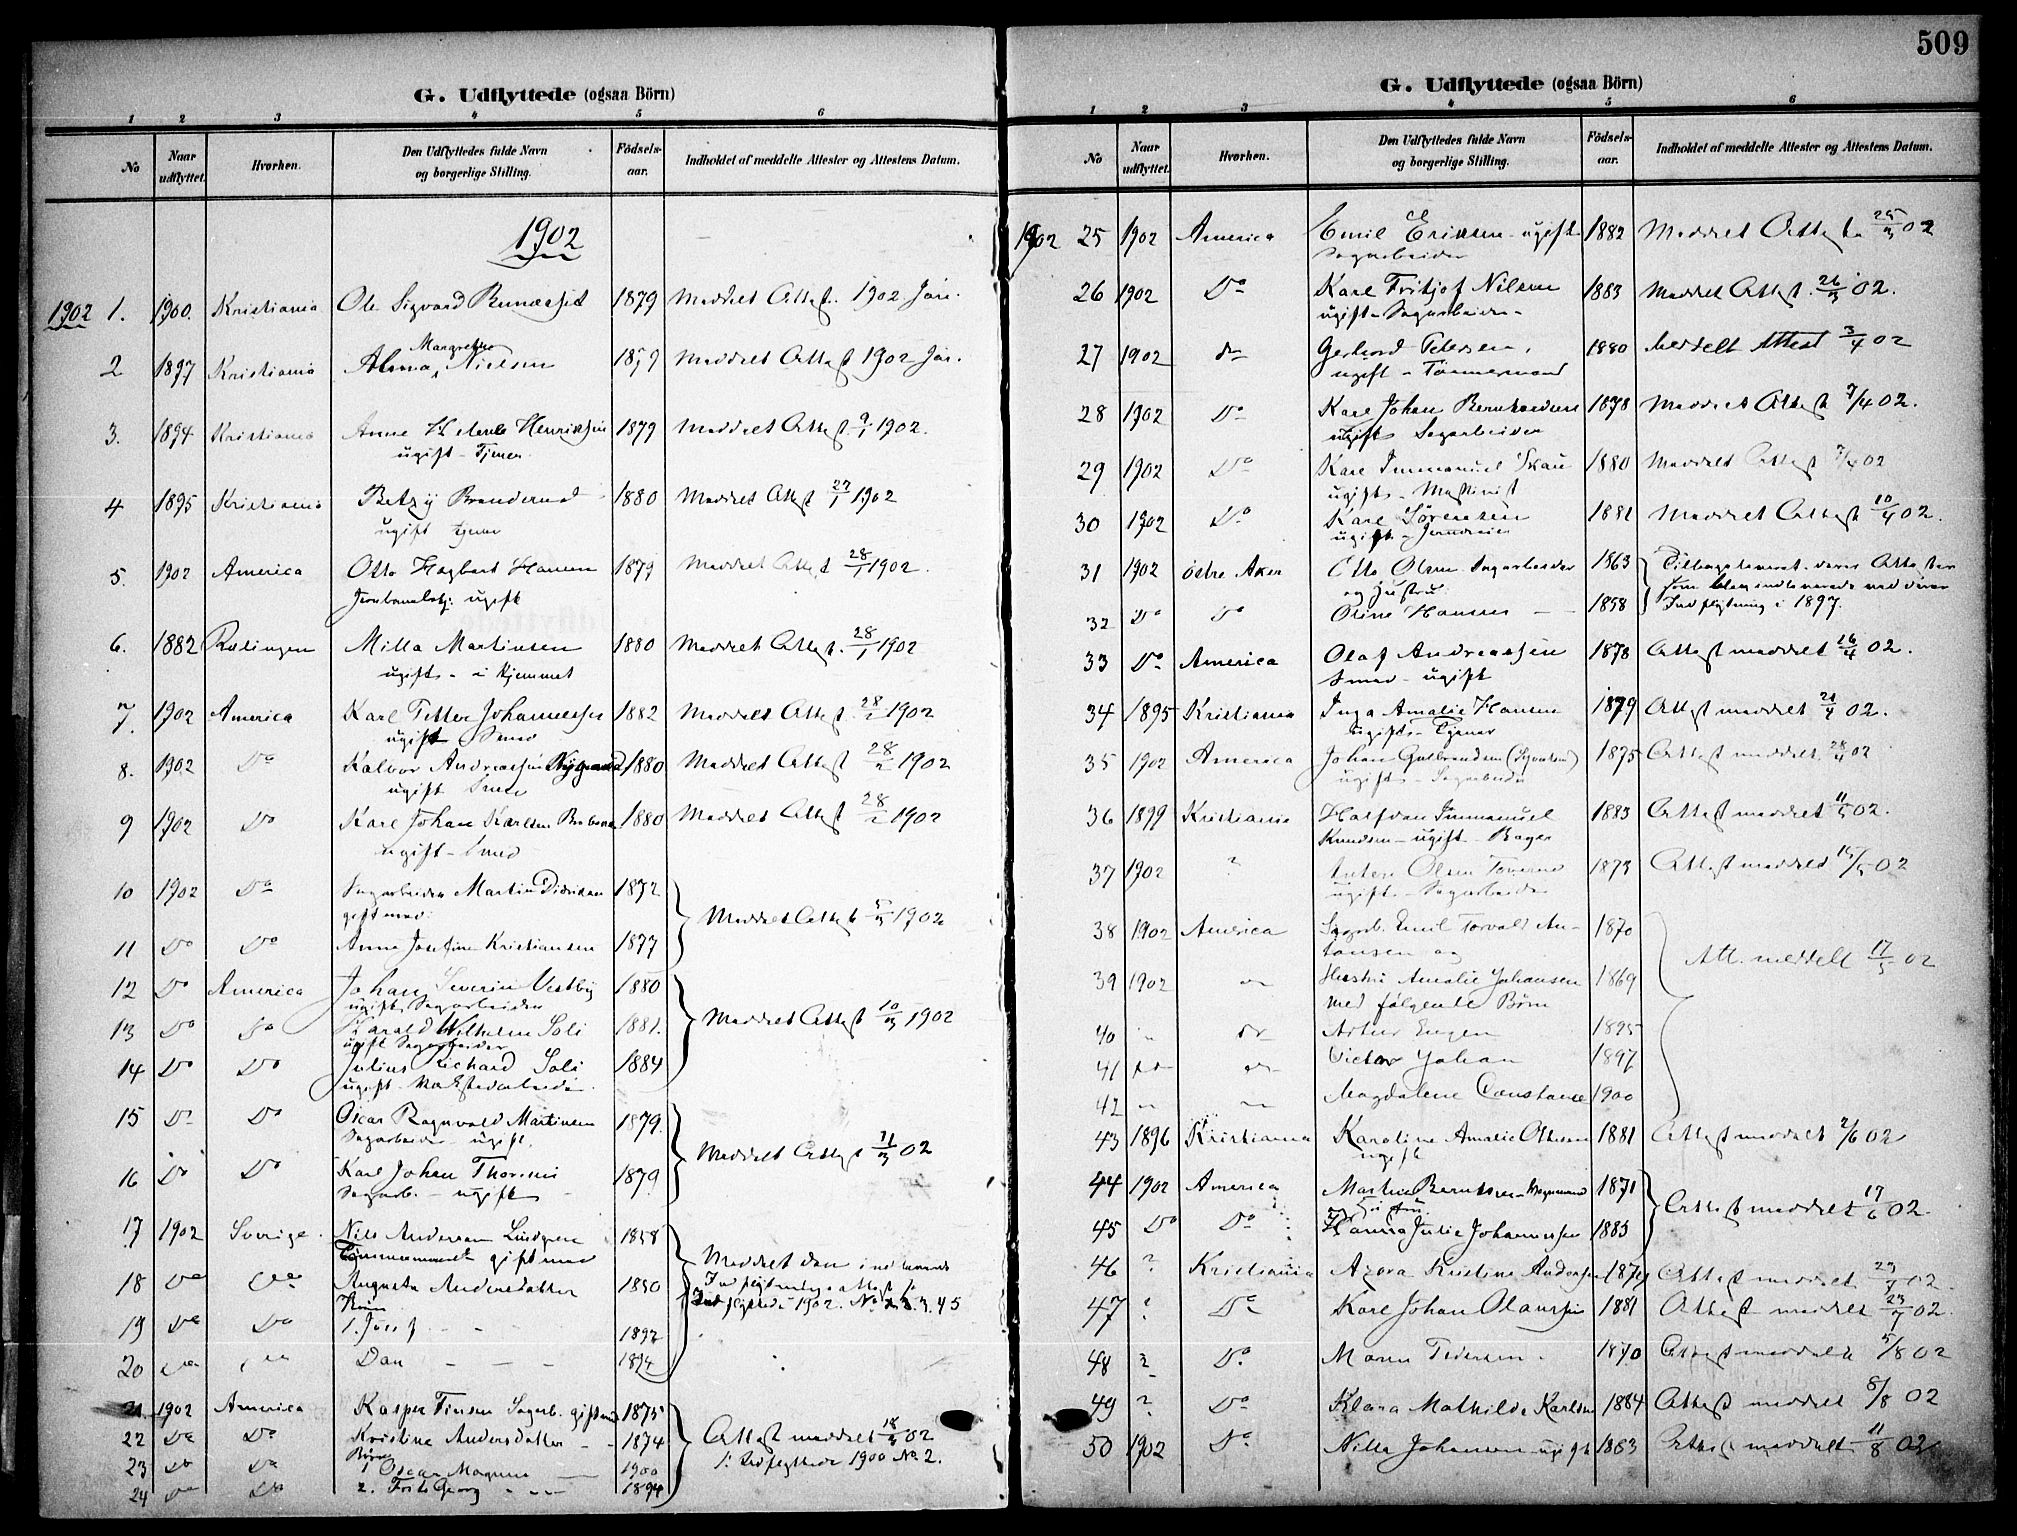 509
G. Udflyttede (ogsaa Börn)
1 2 3 4 5 6
No Naar udflyttet. Hvorhen. Den Udflyttedes fulde Navn og borgerlige Stilling. Födsels-aar. Indholdet af meddelte Attester og Attestens Datum.
1902
1902 1. 1900. Kristiania Ole Sigvard 1879 Meddelt Attest. 1902 Jan.
2 1897 Kristiania Alma Margrethe Nielsen 1879 Meddelt Attest 1902 Jan.
3. 1894 Kristiania Anne Helene Henriksen 1879 Meddelt Attest 9/1 1902.
ugift - Tjener
4 1895 Kristiania Betzy 1880 Meddelt Attest 27/1 1902
ugift tjener
5. 1902 America Otto Hagbart Hansen 1879 Meddelt Attest 28/1 1902.
ugift
6. 1882 Rælingen Milla Martinsen 1880 Meddelt Attest. 28/1 1902
ugift - i Hjemmet
7. 1902 America Karl Petter Johannessen 1882 Meddelt Attest 28/2 1902
ugift Smed
8. 1902 Do Halvor Andreassen Nygaard 1880 Meddelt Attest 28/2 1902
ugift Smed
9 1902 Do Karl Johan Karlsen 1880 Meddelt Attest 28/2 1902
ugift - Smed
10 1902 Do Sagarbeider Martin Didriksen 1872
gift med: Meddelt Attest 5/3 1902
11 Do Do Anna Josefine Kristiansen 1877
12 Do America Johan Severin Vestby 1880
ugift Sagarbeider
13 Do Do Harald Wilhelm Soli 1881. Meddelt Attest 10/3 1902
ugift Sagarbeider
14 Do Do Julius Richard Soli 1884
ugift -
15 Do Do Oscar Ragnvald Martinsen 1879.
Sagarbeider ugift. Meddelt Attest 11/3 02
16 Do Do Karl Johan 1879
Sagarb. - ugift
17 1902 Sverige. Nils Andersen Lindgren 1858
Tømmermand gift med Meddelt den indleverede
18 Do Do Augusta Andersdatter 1850 Indflytningsattest fra
Børn Indflyttede 1902. No
19 Do Do 1. Josef 1892
20 Do Do Dan 1894
21 1902 America Kasper Finsen Sagarb. gift med 1875
22 Do Do Kristine Andersdatter 1874 Attest meddelt 18/3 02
Børn
23 Do Do 1 Oscar Magnus 1900 Indflyttede 1900 No 2.
24 Do Do 2. Frits Georg 1894
G. Udflyttede (ogsaa Börn)
1 2 3 4 5 6
No Naar udflyttet. Hvorhen. Den Udflyttedes fulde Navn og borgerlige Stilling. Födsels-aar. Indholdet af meddelte Attester og Attestens Datum.
1902 25 1902 America Emil Eriksen - ugift 1882 Meddelt Attest 25/3 02
Sagarbeider
26 1902 Do Karl Fritjof Nilsen 1883 Meddelt Attest. 26/3 02.
ugift - Sagarbeider -
27 1902 do Gerhard Petersen, 1880 Meddelt Attest 3/4 02
ugift - Tømmermand
28 1902 Do Karl Johan Bernhardsen 1878 Meddelt Attest 7/4 02.
ugift Sagarbeider
29 1902 Do Karl Immanuel Skau 1880 Meddelt Attest 7/4 02
ugift - Maskinist
30 1902 Do Karl Sørensen 1881 Meddelt Attest 10/4 02.
ugift -
31 1902 östre Aker Otto Olsen Sagarbeider 1863 Tilbageleveret deres Attester
og Hustru som blev indleverede ved deres
32 Do Do Oline Hansen 1858 Indflytning i 1897.
33 Do America Olaf Andreassen 1878 Attest meddelt 16/4 02.
Smed - ugift
34 1895 Kristiania Inga Amalie Hansen 1879 Attest meddelt 21/4 02.
ugift - Tjener
35 1902 America Johan Gulbrandsen 1875 Attest meddelt 28/4 02
ugift - Sagarbeider
36 1899 Kristiania Halfdan Immanuel 1883 Attest meddelt 11/5 02.
Knudsen - ugift - Bager
37 1902 " Anton Olsen 1873 Attest meddelt 15/5 02
ugift - Sagarbeider
38 1902 America Sagarb. Emil Torvald An- 1870
tonsen og Att. meddelt 17/5 02
39 1902 do Hustru Amalie Johansen 1869
med følgende Børn
40 " do Artur Eugen 1895
41 do do Victor Johan 1897
42 " " Magdalene Constance 1900
43 1896 Kristiania Karoline Amalie Ottesen 1881 Attest meddelt 2/6 02
ugift
44 1902 America Martin Berntsen 1871
og Hustru Attest meddelt 17/6 02
45 Do Do Hanna Julie Johannessen 1883
46 ? Kristiania Azora Kristine Andersen 1879 Attest meddelt 23/7 02.
47 ? Do Karl Johan Olaussen 1881 Attest meddelt 23/7 02.
48 ? Do Maren Pedersen. 1870 Attest meddelt 5/8 02
49 ? Do Klara Mathilde Karlsen 1884 Attest meddelt 8/8 02
50 1902 Do Nilla Johansen ugift 1863 Attest meddelt 11/8 02